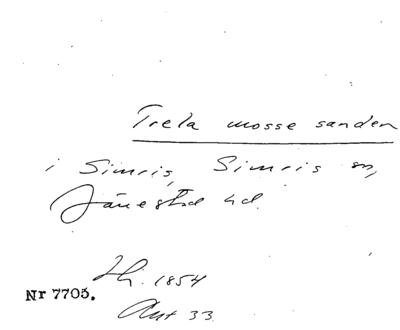 Trela mosse sanden
i Simris, Simris sn,
Järrestad hd.
Hi. 1854
Nr 7705.
Akt 33